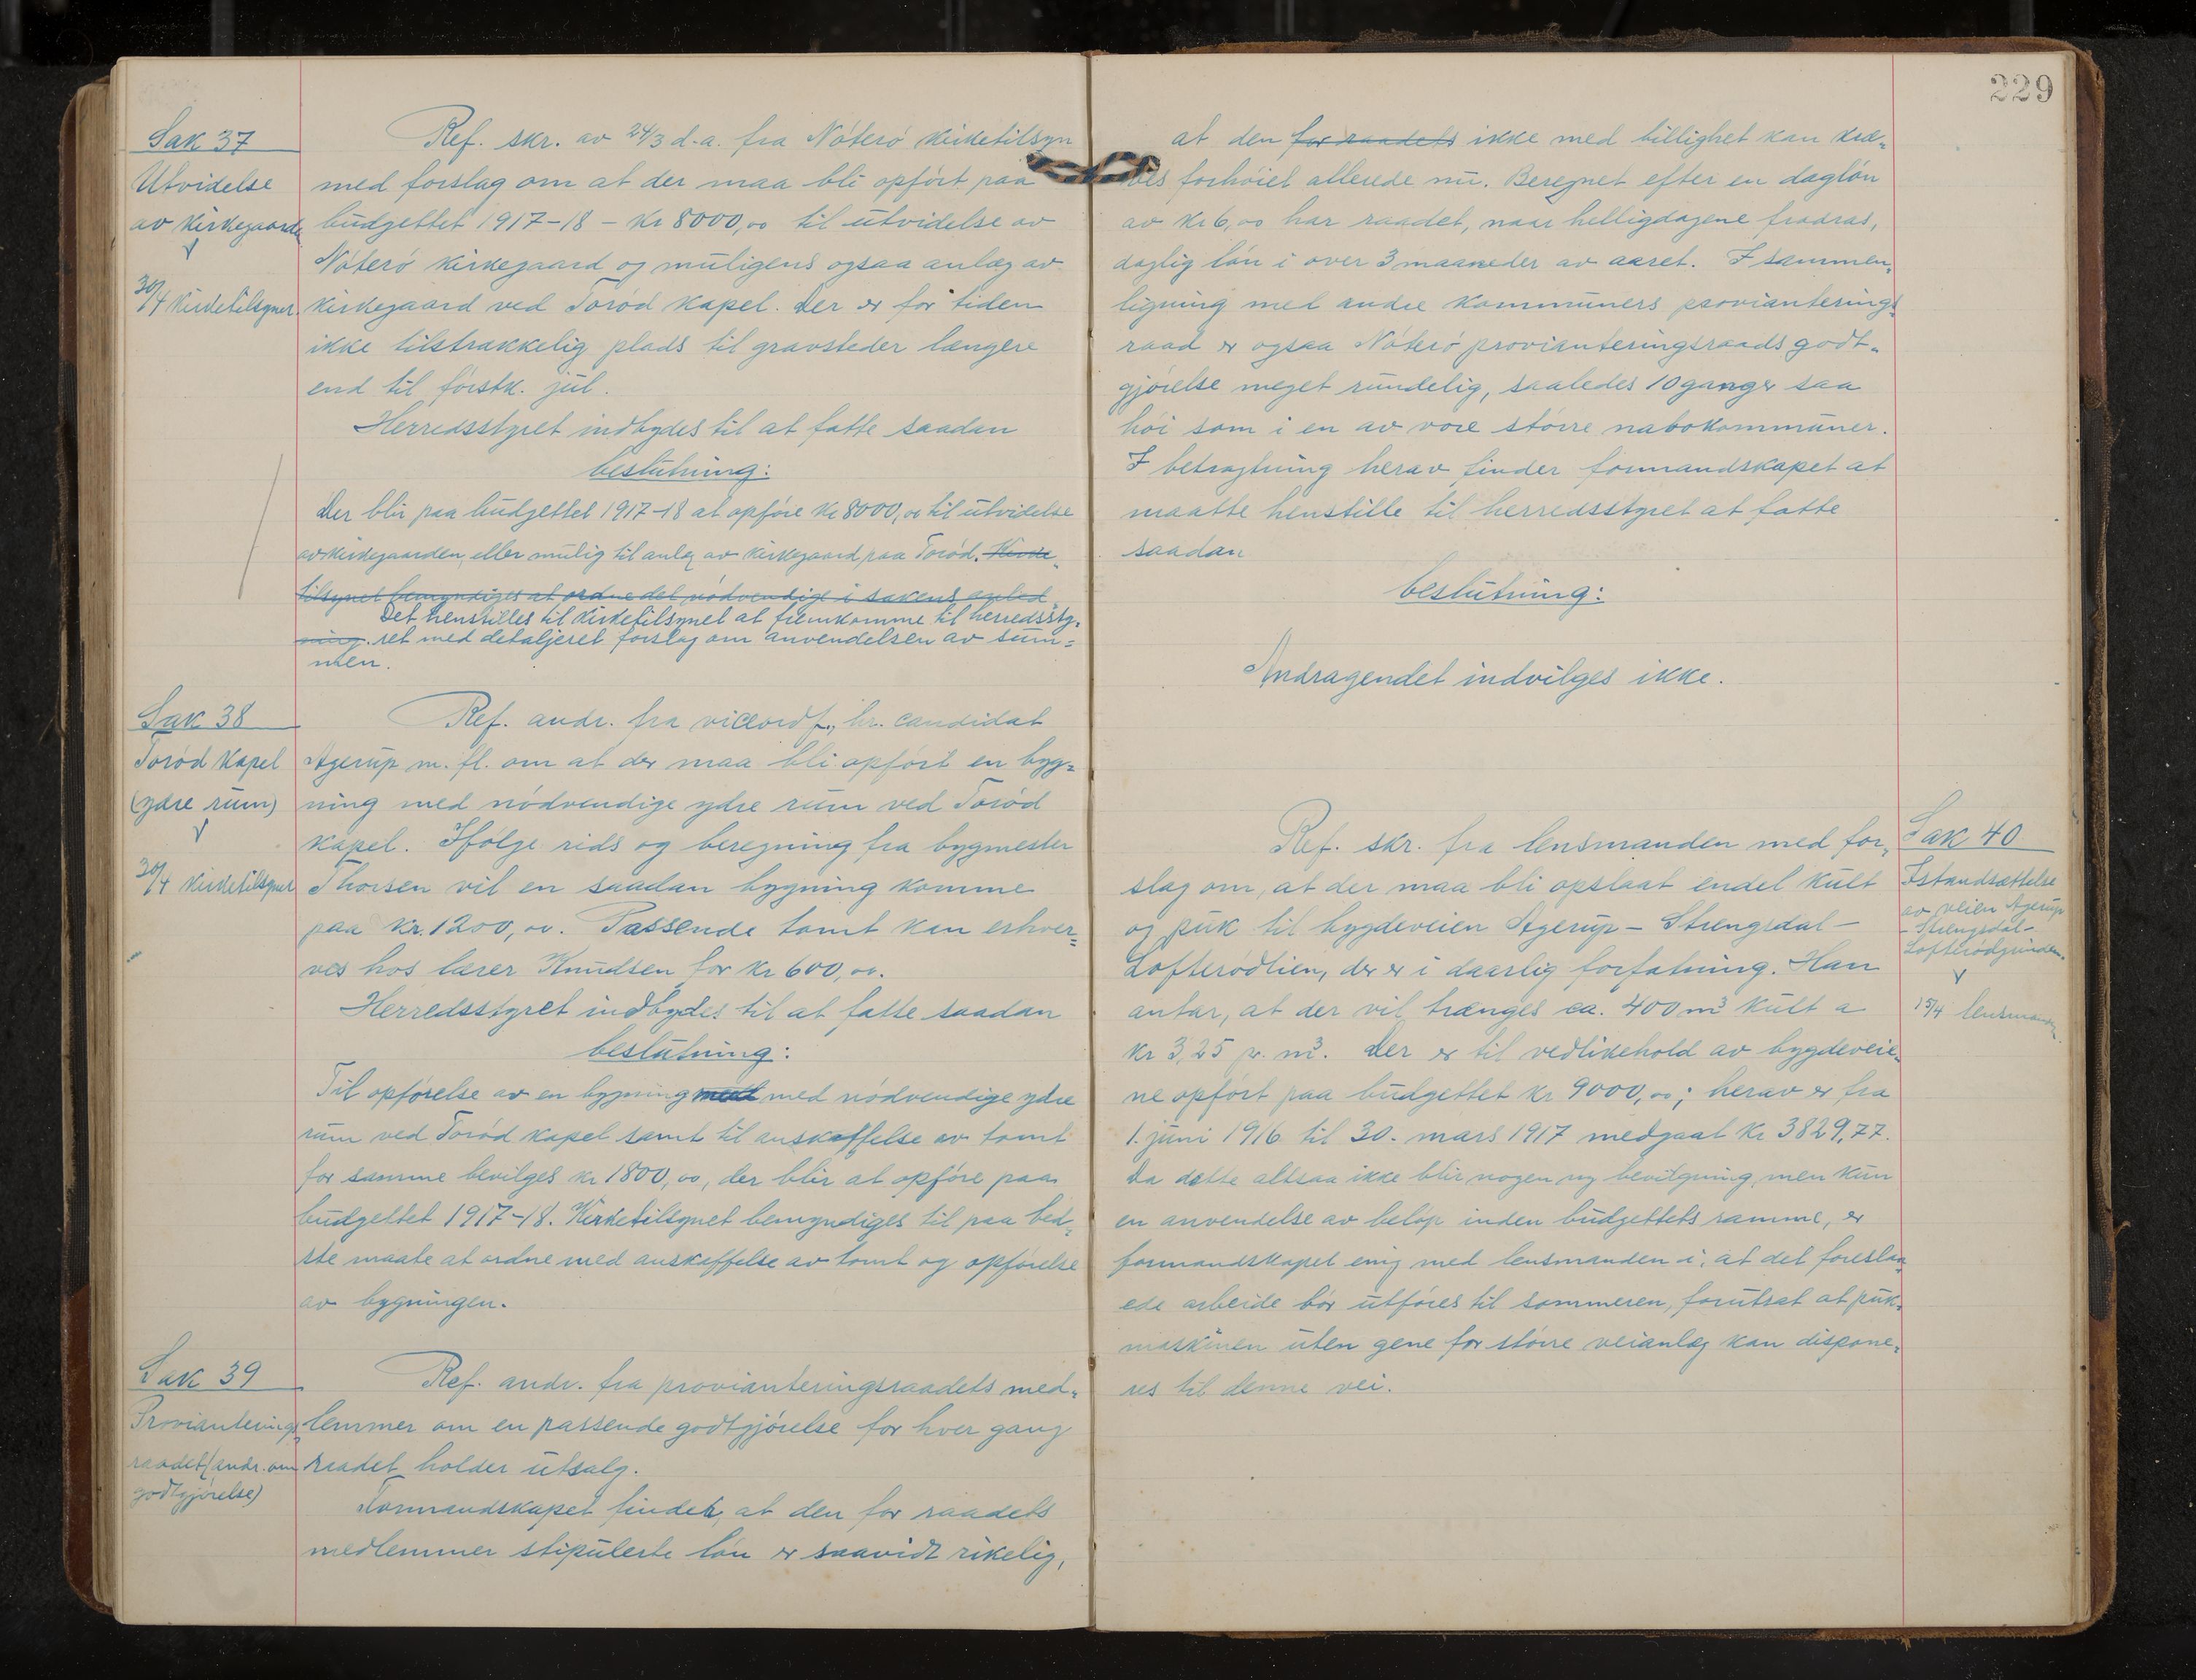 229
Sak 37
Utvidelse
av kirkegaarde
30/4 Kirketilsynet.
Ref. skr. av 24/3 d.a. fra Nøterø kirketilsyn
med forslag om at der maa bli opført paa
budgettet 1917-18 - kr 8000,00 til utvidelse av
Nøterø kirkegaard og muligens ogsaa anlæg av
kirkegaard ved Torød kapel. Der er for tiden
ikke tilstrækkelig plads til gravsteder længere
end til førstk. jul.
Herredsstyret indbydes til at fatte saadan
beslutning:
Der blir paa budgettet 1917-18 at opføre kr 8000,00 til utvidelse
av kirkegaarden, eller mulig til anlæg av kirkegaard paa Torød. Kirke-
tilsynet bemyndiges at ordne det nødvendige i sakens anled
Det henstilles til kirketilsynet at fremkomme til herredssty-
ning. ret med detaljeret forslag om anvendelsen av sum=
men.
Sak 38
Torød kapel
(ydre rum)
30/4 kirketilsynet
Ref. andr. fra viceordf., hr. candidat
Agerup m. fl. om at der maa bli opført en byg=
ning med nødvendige ydre rum ved Torød
kapel. Ifølge rids og beregning fra bygmester
Thorsen vil en saadan bygning komme
paa kr. 1200,00. Passende tomt kan erhver=
ves hos lærer Knudsen for kr 600,00.
Herredsstyret indbydes til at fatte saadan
beslutning:
Til opførelse av en bygning med med nødvendige ydre
rum ved Torød kapel samt til anskaffelse av tomt
for samme bevilges kr 1800,00, der blir at opføre paa
budgettet 1917-18. Kirketilsynet bemyndiges til paa bed=
ste maate at ordne med anskaffelse av tomt og opførelse
av bygningen.
Sak 39
Provianterings-
raadet (andr. om
godtgjørelse)
Ref. andr. fra provianteringsraadets med=
lemmer om en passende godtgjørelse for hver gang
raadet holder utsalg.
Formandskapet finder, at den for raadets
medlemmer stipulerte løn er saavidt rikelig,
at den for raadets ikke med billighet kan kræ=
ves forhøiet allerede nu. Beregnet efter en dagløn
av kr 6,00 har raadet, naar helligdagene fradras,
daglig løn i over 3 maaneder av aaret. I sammen=
ligning med andre kommuners provianterings-
raad er ogsaa Nøterø provianteringsraads godt=
gjørelse meget rundelig, saaledes 10 ganger saa
høi som i en av vore større nabokommuner.
I betragtning herav finder formandskapet at
maatte henstille til herredsstyret at fatte
saadan
beslutning:
Andragendet indvilges ikke.
Sak 40
Istandsættelse
av veien Agerup
- Strengsdal -
Lofterødgrinden.
15/4 lensmanden
Ref. skr. fra lensmanden med for=
slag om, at der maa bli opslaat endel kult
og puk til bygdeveien Agerup - Strengsdal -
Lofterødlien, der er i daarlig forfatning. Han
antar, at der vil trænges ca. 400 m³ kult a
kr 3,25 pr. m³. Der er til vedlikehold av bygdeveie-
ne opført paa budgettet kr 9000,00; herav er fra
1. juni 1916 til 30. mars 1917 medgaat kr 3829,77.
Da dette altsaa ikke blir nogen ny bevilgning, men kun
en anvendelse av beløp inden budgettets ramme, er
formandskapet enig med lensmanden i, at det foreslaa-
ede arbeide bør utføres til sommeren, forutsat at puk-
maskinen uten gene for større veianlæg kan dispone-
res til denne vei.